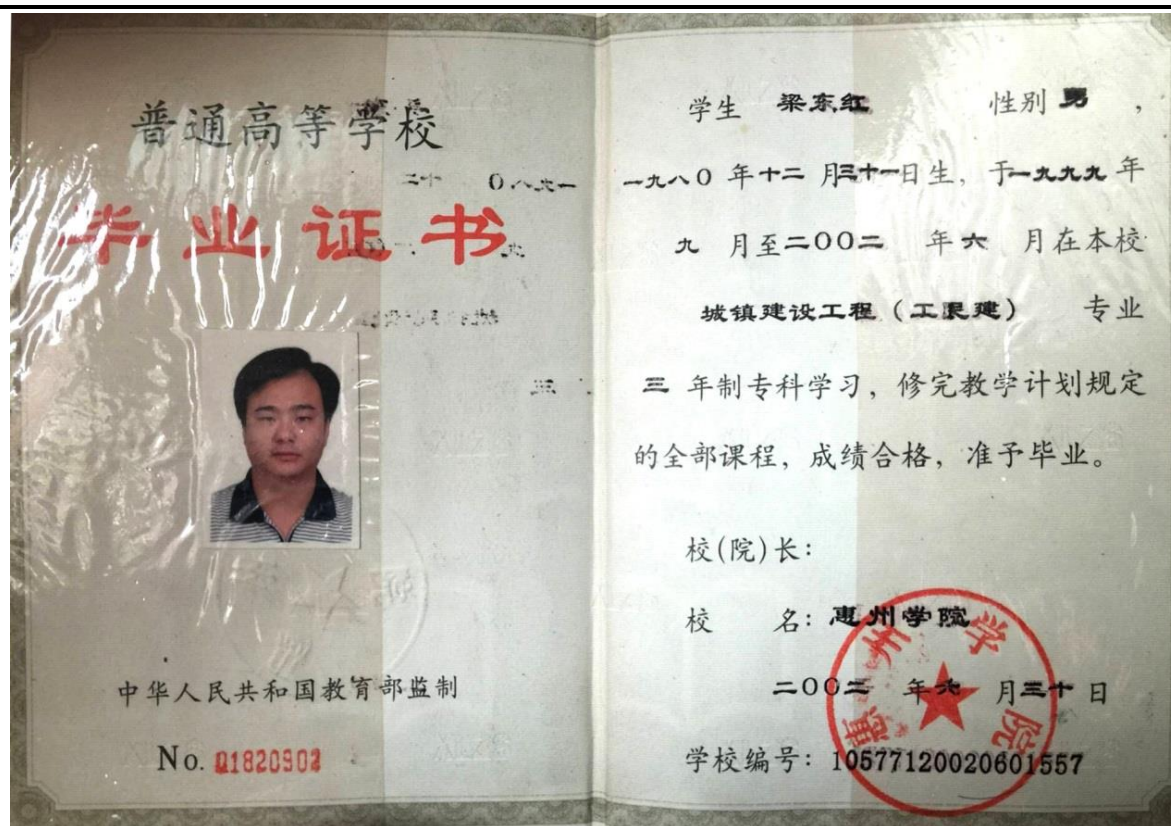 普通高等学校
毕业证书
中华人民共和国教育部监制
No. 01820902
学生 梁东红 性别 男，
一九八0 年十二 月三十一日生，于一九九九 年
九 月至二00二 年 六 月在本校
城镇建设工程（工民建） 专业
三 年制专科学习，修完教学计划规定
的全部课程，成绩合格，准予毕业。
校(院)长：
校 名：惠州学院
二00二 年 六 月三十 日
学校编号：10577120020601557
惠州学院